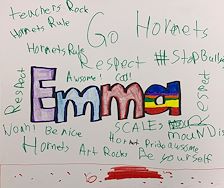 Teachers Rock
Hornets Rule
Go Hornets
Hornets Rule
Respect
#StopBully
Awesome! Cool!
Respect
Emma
Respect
Woah! Be nice
SCALES
Hornet Pride awesome
Hornets Art Rocks Be yourself